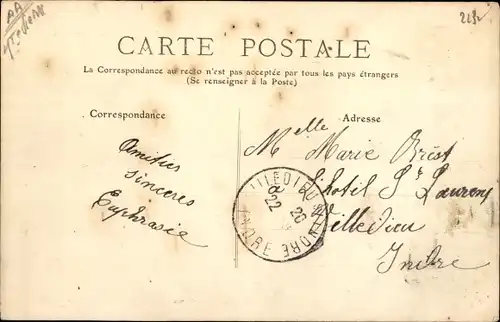 2132
CARTE POSTALE
La Correspondance au recto n'est pas acceptée par tous les pays étrangers
(Se renseigner à la Poste)
Correspondance
Adresse
Amitiés
sincères
Euphrasie
Melle Marie Brest
l'hotel St Laurent
Villedieu
Indre
VILLEDIEU S INDRE
22
INDRE